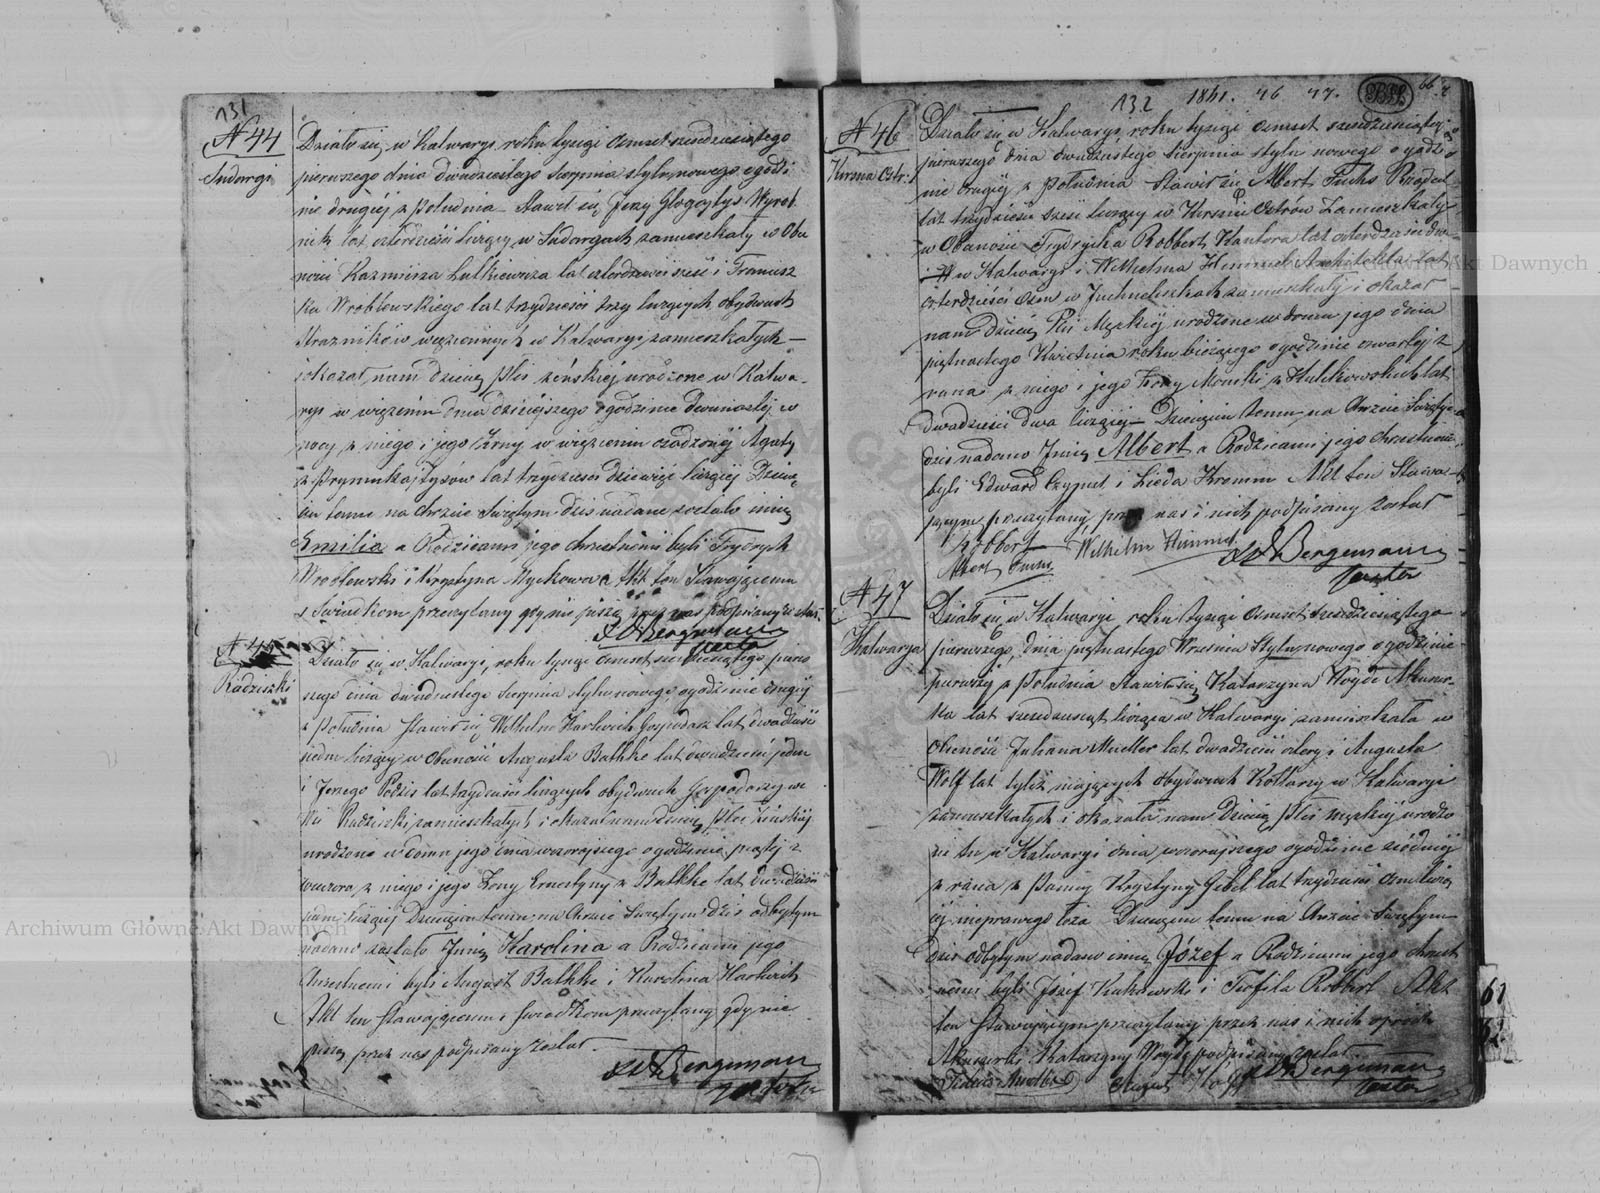 131
N 44
Sudargi
Działo się w Kalwaryi roku tysiąc osmset sześćdziesiątego
pierwszego dnia dwudziestego Sierpnia stylu nowego o godzi
nie drugiej z południa Stawił się Jerzy Wyrob
nik lat czterdzieści liczący w Sudargach zamieszkały w Obe
ności Kazmierza Lutkiewicza lat czterdzieści sześć i Francisz
ka Wroblewskiego lat trzydzieści trzy liczących obydwoch
Straznikow więziennych w Kalwaryi zamieszkałych
i okazał nam dziecię płci żeńskiej urodzone w Kalwa
ryi w więzieniu dnia dzisiejszego o godzinie dwunastej w
nocy z niego i jego Żony w więzieniu osadzonej Agaty
z lat trzydzieści dziewięć liczącej Dziecię
ciu temu na chrzcie Świętym dziś nadane zostało imię
Emilia a Rodzicami jego chrzestnemi byli Frydrych
Wroblewski i Krystyna Myckowa Akt ten Stawającemu
i Swiadkom przeczytany gdy nie piszą przez nas podpisany został
Bergemann
Pastor
N 45
Radziszki
Działo się w Kalwaryi, roku tysiąc osmset sześćdziesiątego pierw
szego dnia dwudziestego Sierpnia stylu nowego o godzinie drugiej
z południa Stawił się Wilhelm Harkwich Gospodarz lat dwadzieścia
siedm liczący w obecności Augusta Bathke lat dwadzieścia jeden
i Jerzego lat trzydzieści liczących obydwoch Gospodarzy we
wsi Radziszki zamieszkałych i okazał nam dziecię płci żeńskiej
urodzone w domu jego dnia wczorajszego o godzinie piątej z
wieczora z niego i jego Żony Ernestyny z Bathke lat dwadzieścia
jeden liczącej Dziecięciu temu na Chrzcie Świętym dziś odbytym
nadano zostało Imię Karolina a Rodzicami jego
chrzestnemi byli August Bathke i Karolina Harkwich
Akt ten stawającemu i świadkom przeczytany gdy nie
piszą przez nas podpisany został
Bergemann
Pastor
132 1861. 46 47.
N 46
Kirsna Ostr:
Działo się w Kalwaryi roku tysiąc osmset sześćdziesiątego
pierwszego dnia dwudziestego Sierpnia stylu nowego o godzi
nie drugiej z południa Stawił się Albert Fuchs Rządca
lat trzydzieści sześć liczący w Kirsnie Ostrów Zamieszkały
w Obecności Frydrycha Robbert Kantora lat czterdzieści
w Kalwaryi i Wilhelma Himmel Architekta lat
czterdzieści osm w zamieszkały i okazał
nam dziecię Płci Męzkiej urodzone w domu jego dnia
piętnastego Kwietnia roku bieżącego o godzinie czwartej z
rana z niego i jego Żony lat
dwadzieścia dwa liczącej Dziecięciu temu na chrzcie Święty
dziś nadano Imię Albert a Rodzicami jego chrzestnemi
byli Edward i Kromm Akt ten Stawa
jącym przeczytany przez nas i nich podpisany został
Robbert Wilhelm Himmel
Albert Fuchs
Bergemann
Pastor
N 47
Kalwarya
Działo się w Kalwaryi roku tysiąc osmset sześćdziesiątego
pierwszego, dnia piętnastego Wrzesnia Stylu nowego o godzinie
pierwszej z południa Stawiła się Katarzyna Woyde Akuszer
ka lat sześćdziesiąt licząca w Kalwaryi zamieszkała w
obecności Juliana Mueller lat dwadzieścia cztery i Augusta
Wolf lat tyleż mających obydwoch Kotlarzy w Kalwaryi
zamieszkałych i okazała nam Dziecię płci męzkiej urodzo
ne tu w Kalwaryi dnia wczorajszego o godzinie siódmej
z rana z Panny Krystyny Gibel lat trzydzieści osm liczą
cej nieprawego łoża Dziecięciu temu na chrzcie Świętym
dziś odbytym nadano imię Józef a Rodzicami jego chrzest
nemi byli Józef Kutowski i Teofila Robbert Akt
ten Stawającym przeczytany przez nas i nich oprócz
Akuszerki Katarzyny Woyde podpisany został
Julius Mueller August Wolff Bergemann
Pastor
Archiwum Główne Akt Dawnych
Archiwum Główne Akt Dawnych